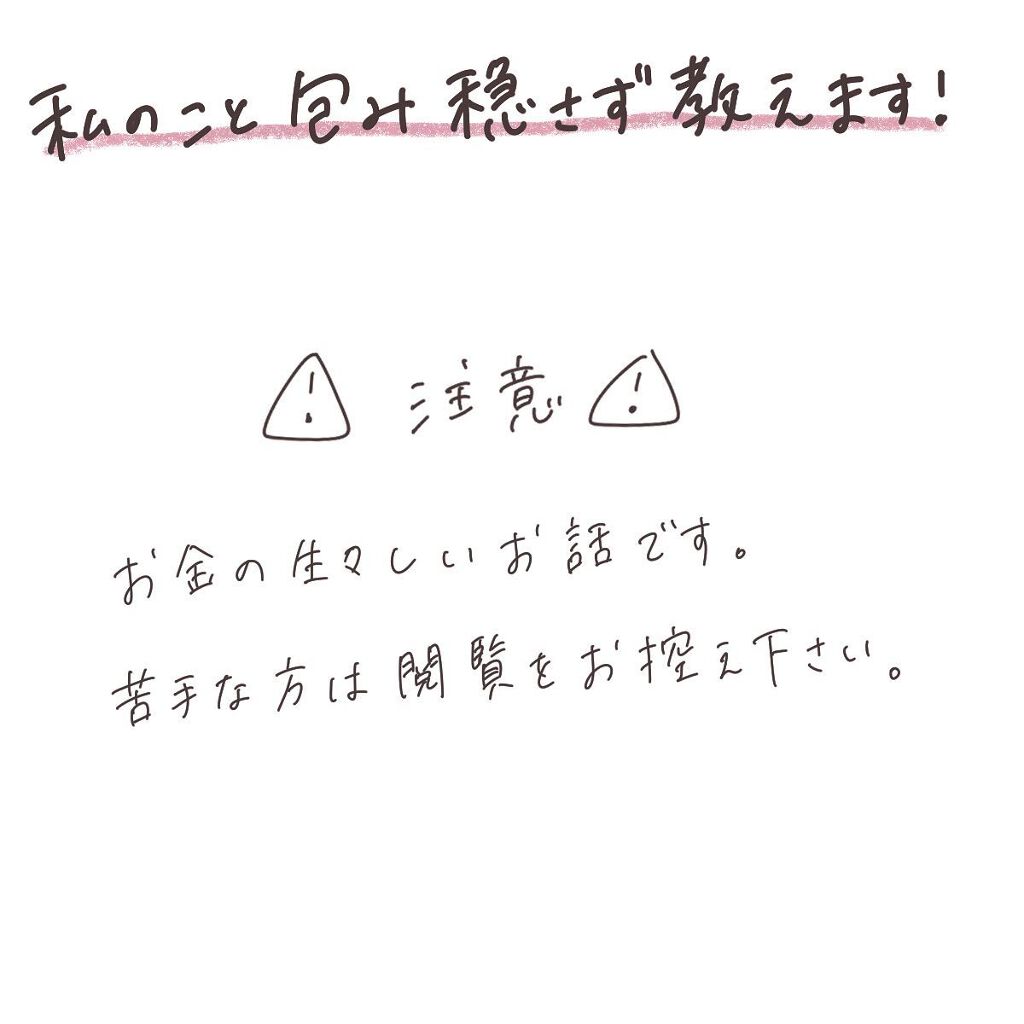 私のこと包み穏さず教えます!
⚠ 注意 ⚠
お金の生々しいお話です。
苦手な方は閲覧をお控え下さい。